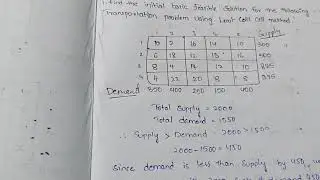 1. Find the initial basic feasible solution for the following
Transportation problem using Least Cost Cell method.
1 2 3 4 5 Supply
1 10 2 16 14 10 300
2 6 18 12 13 16 500
3 8 4 14 12 10 825
4 4 22 20 8 8 375
Demand 350 400 250 150 400
Total Supply = 2000
Total demand = 1550
∴ Supply > Demand 2000 >
2000 - = 450
Since demand is less than supply by 450,